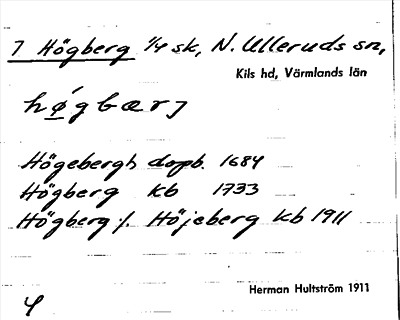 7 Högberg 1/4 sk, N. Ulleruds sn,
Kils hd, Värmlands län
hǿgbærj
Högebergh dopb. 1684
Högberg kb 1733
Högberg :/. Höjeberg kb 1911
Herman Hultström 1911
4